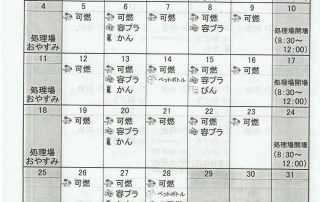 4 5 6 7 8 9 10
処理場
おやすみ
可燃
可燃
容プラ
かん
可燃
可燃
容プラ
可燃
処理場開場
(8:30~
12:00)
11 12 13 14 15 16 17
処理場
おやすみ
可燃
可燃
容プラ
かん
可燃
ペットボトル
可燃
容プラ
びん
可燃
処理場開場
(8:30~
12:00)
18 19 20 21 22 23 24
処理場
おやすみ
可燃
可燃
容プラ
かん
可燃
可燃
容プラ
可燃
処理場開場
(8:30~
12:00)
25 26 27 28 29 30 31
可燃
可燃
容プラ
かん
可燃
ペットボトル